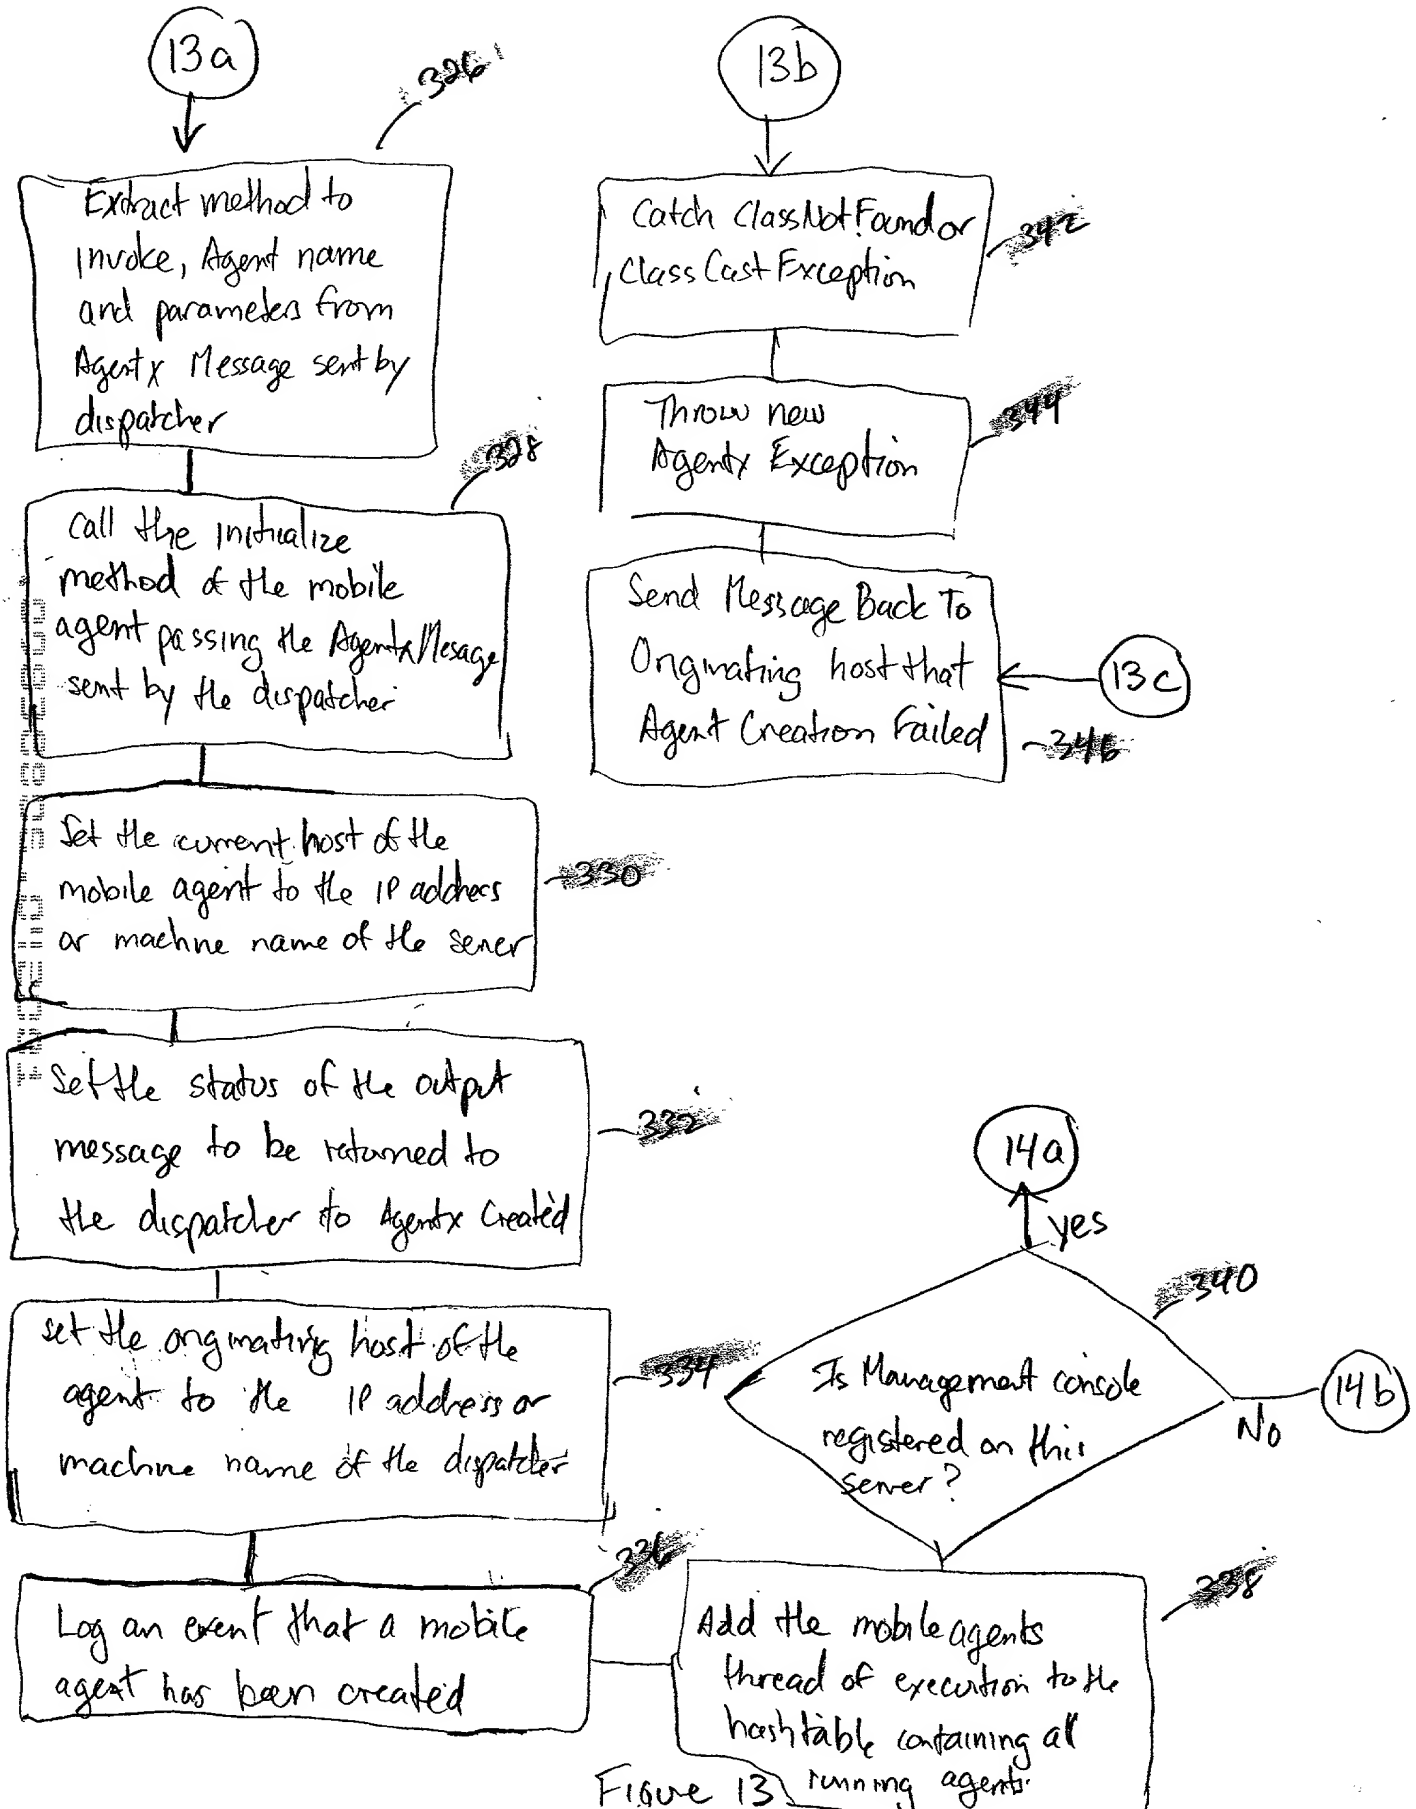 13a
326
Extract method to
invoke, Agent name
and parameters from
Agentx Message sent by
dispatcher
328
call the initialize
method of the mobile
agent passing the AgentxMesage
sent by the dispatcher
Set the current host of the
mobile agent to the IP address
or machine name of the server
330
Set the status of the output
message to be returned to
the dispatcher to Agentx Created
332
set the originating host of the
agent to the IP address or
machine name of the dispatcher
334
336
Log an event that a mobile
agent has been created
13b
Catch ClassNotFound or
Class Cast Exception
342
Throw new
Agentx Exception
344
Send Message Back To
Originating host that
Agent Creation Failed
13c
346
14a
yes
340
Is Management console
registered on this
server?
14b
No
338
Add the mobile agents
thread of execution to the
hashtable containing all
running agents.
Figure 13